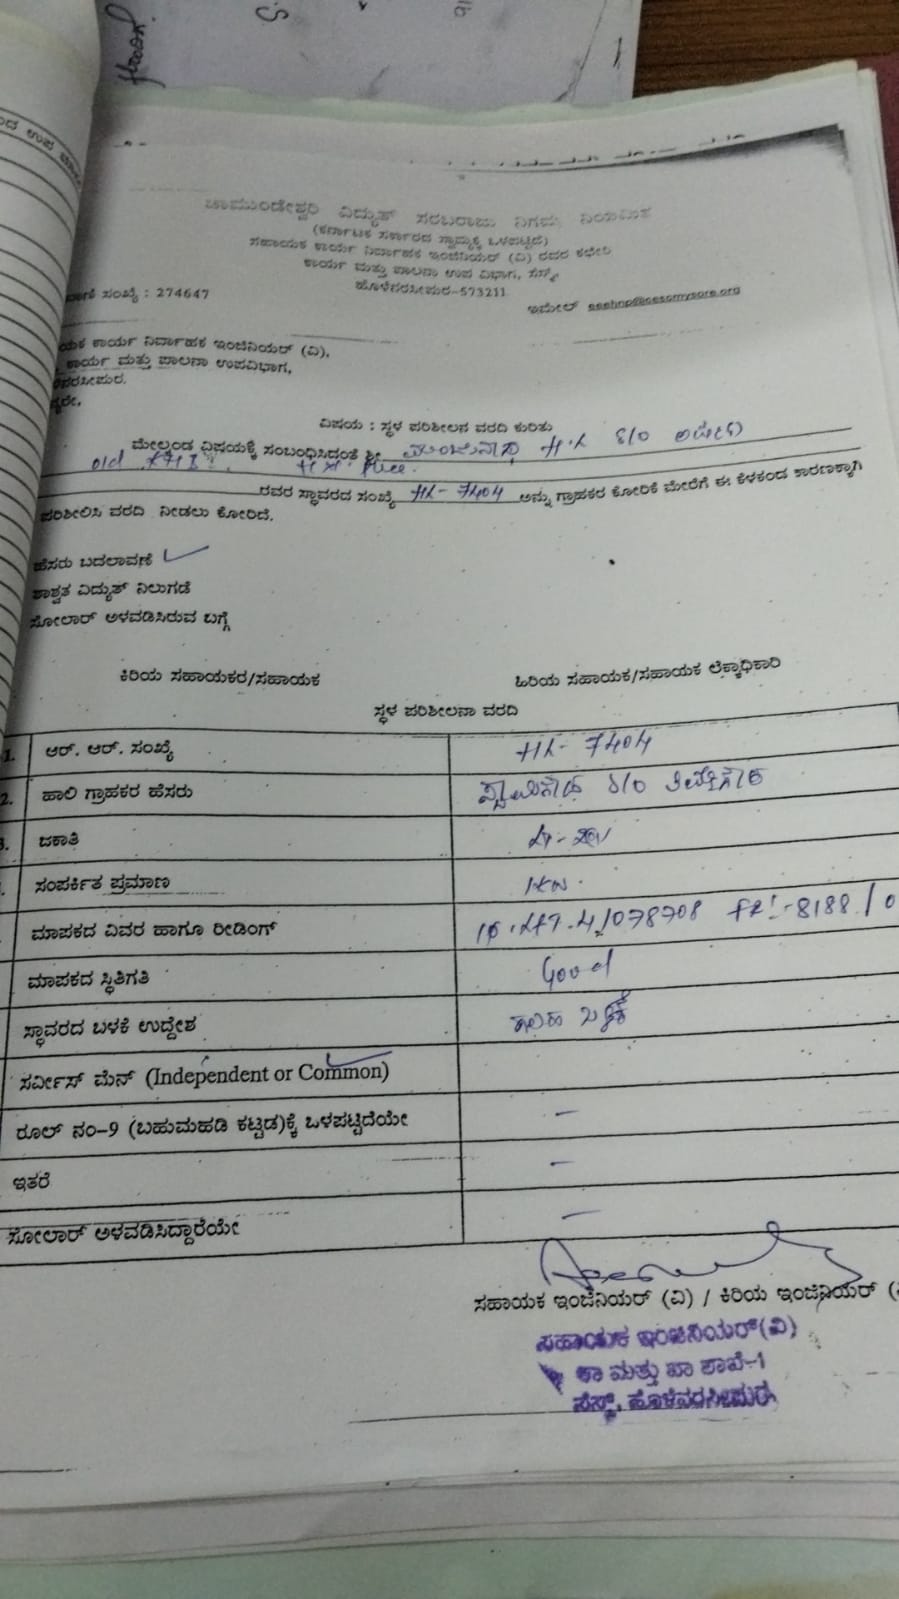 ಚಾಮುಂಡೇಶ್ವರಿ ವಿದ್ಯುತ್ ಸರಬರಾಜು ನಿಗಮ ನಿಯಮಿತ
(ಕರ್ನಾಟಕ ಸರ್ಕಾರದ ಸ್ವಾಮ್ಯಕ್ಕೆ ಒಳಪಟ್ಟಿದೆ)
ಸಹಾಯಕ ಕಾರ್ಯ ನಿರ್ವಾಹಕ ಇಂಜಿನಿಯರ್ (ವಿ) ರವರ ಕಛೇರಿ
ಕಾರ್ಯ ಮತ್ತು ಪಾಲನಾ ಉಪ ವಿಭಾಗ, ಸೆಸ್ಕ್,
ಹೊಳೆನರಸೀಪುರ-573211
ಸಂಖ್ಯೆ : 274647
ಇಮೇಲ್ aeehnp@cescmysore.org
ಕಾರ್ಯ ನಿರ್ವಾಹಕ ಇಂಜಿನಿಯರ್ (ವಿ),
ಕಾರ್ಯ ಮತ್ತು ಪಾಲನಾ ಉಪವಿಭಾಗ,
ವಿಷಯ : ಸ್ಥಳ ಪರಿಶೀಲನ ವರದಿ ಕುರಿತು
ಮೇಲ್ಕಂಡ ವಿಷಯಕ್ಕೆ ಸಂಬಂಧಿಸಿದಂತೆ ಶ್ರೀ ಮಂಜುನಾಥ H.S S/O
old
ರವರ ಸ್ಥಾವರದ ಸಂಖ್ಯೆ HL-7404 ಅನ್ನು ಗ್ರಾಹಕರ ಕೋರಿಕೆ ಮೇರೆಗೆ ಈ ಕೆಳಕಂಡ ಕಾರಣಕ್ಕಾಗಿ
ಪರಿಶೀಲಿಸಿ ವರದಿ ನೀಡಲು ಕೋರಿದೆ.
ಹೆಸರು ಬದಲಾವಣೆ ✓
ಶಾಶ್ವತ ವಿದ್ಯುತ್ ನಿಲುಗಡೆ
ಸೋಲಾರ್ ಅಳವಡಿಸಿರುವ ಬಗ್ಗೆ
ಕಿರಿಯ ಸಹಾಯಕರ/ಸಹಾಯಕ ಹಿರಿಯ ಸಹಾಯಕ/ಸಹಾಯಕ ಲೆಕ್ಕಾಧಿಕಾರಿ
ಸ್ಥಳ ಪರಿಶೀಲನಾ ವರದಿ
1. ಆರ್. ಆರ್. ಸಂಖ್ಯೆ HL-7404
2. ಹಾಲಿ ಗ್ರಾಹಕರ ಹೆಸರು S/O
ಜಕಾತಿ
ಸಂಪರ್ಕಿತ ಪ್ರಮಾಣ 1KW.
ಮಾಪಕದ ವಿವರ ಹಾಗೂ ರೀಡಿಂಗ್ FR:-8188/0
ಮಾಪಕದ ಸ್ಥಿತಿಗತಿ Good
ಸ್ಥಾವರದ ಬಳಕೆ ಉದ್ದೇಶ ಗೃಹ ಬಳಕೆ
ಸರ್ವೀಸ್ ಮೆನ್ (Independent or Common)
ರೂಲ್ ನಂ-9 (ಬಹುಮಹಡಿ ಕಟ್ಟಡ)ಕ್ಕೆ ಒಳಪಟ್ಟಿದೆಯೇ -
ಇತರೆ -
ಸೋಲಾರ್ ಅಳವಡಿಸಿದ್ದಾರೆಯೇ -
ಸಹಾಯಕ ಇಂಜಿನಿಯರ್ (ವಿ) / ಕಿರಿಯ ಇಂಜಿನಿಯರ್
ಸಹಾಯಕ ಇಂಜಿನಿಯರ್(ವಿ)
ಕಾ ಮತ್ತು ಪಾ ಶಾಖೆ-1
ಸೆಸ್ಕ್, ಹೊಳೆನರಸೀಪುರ